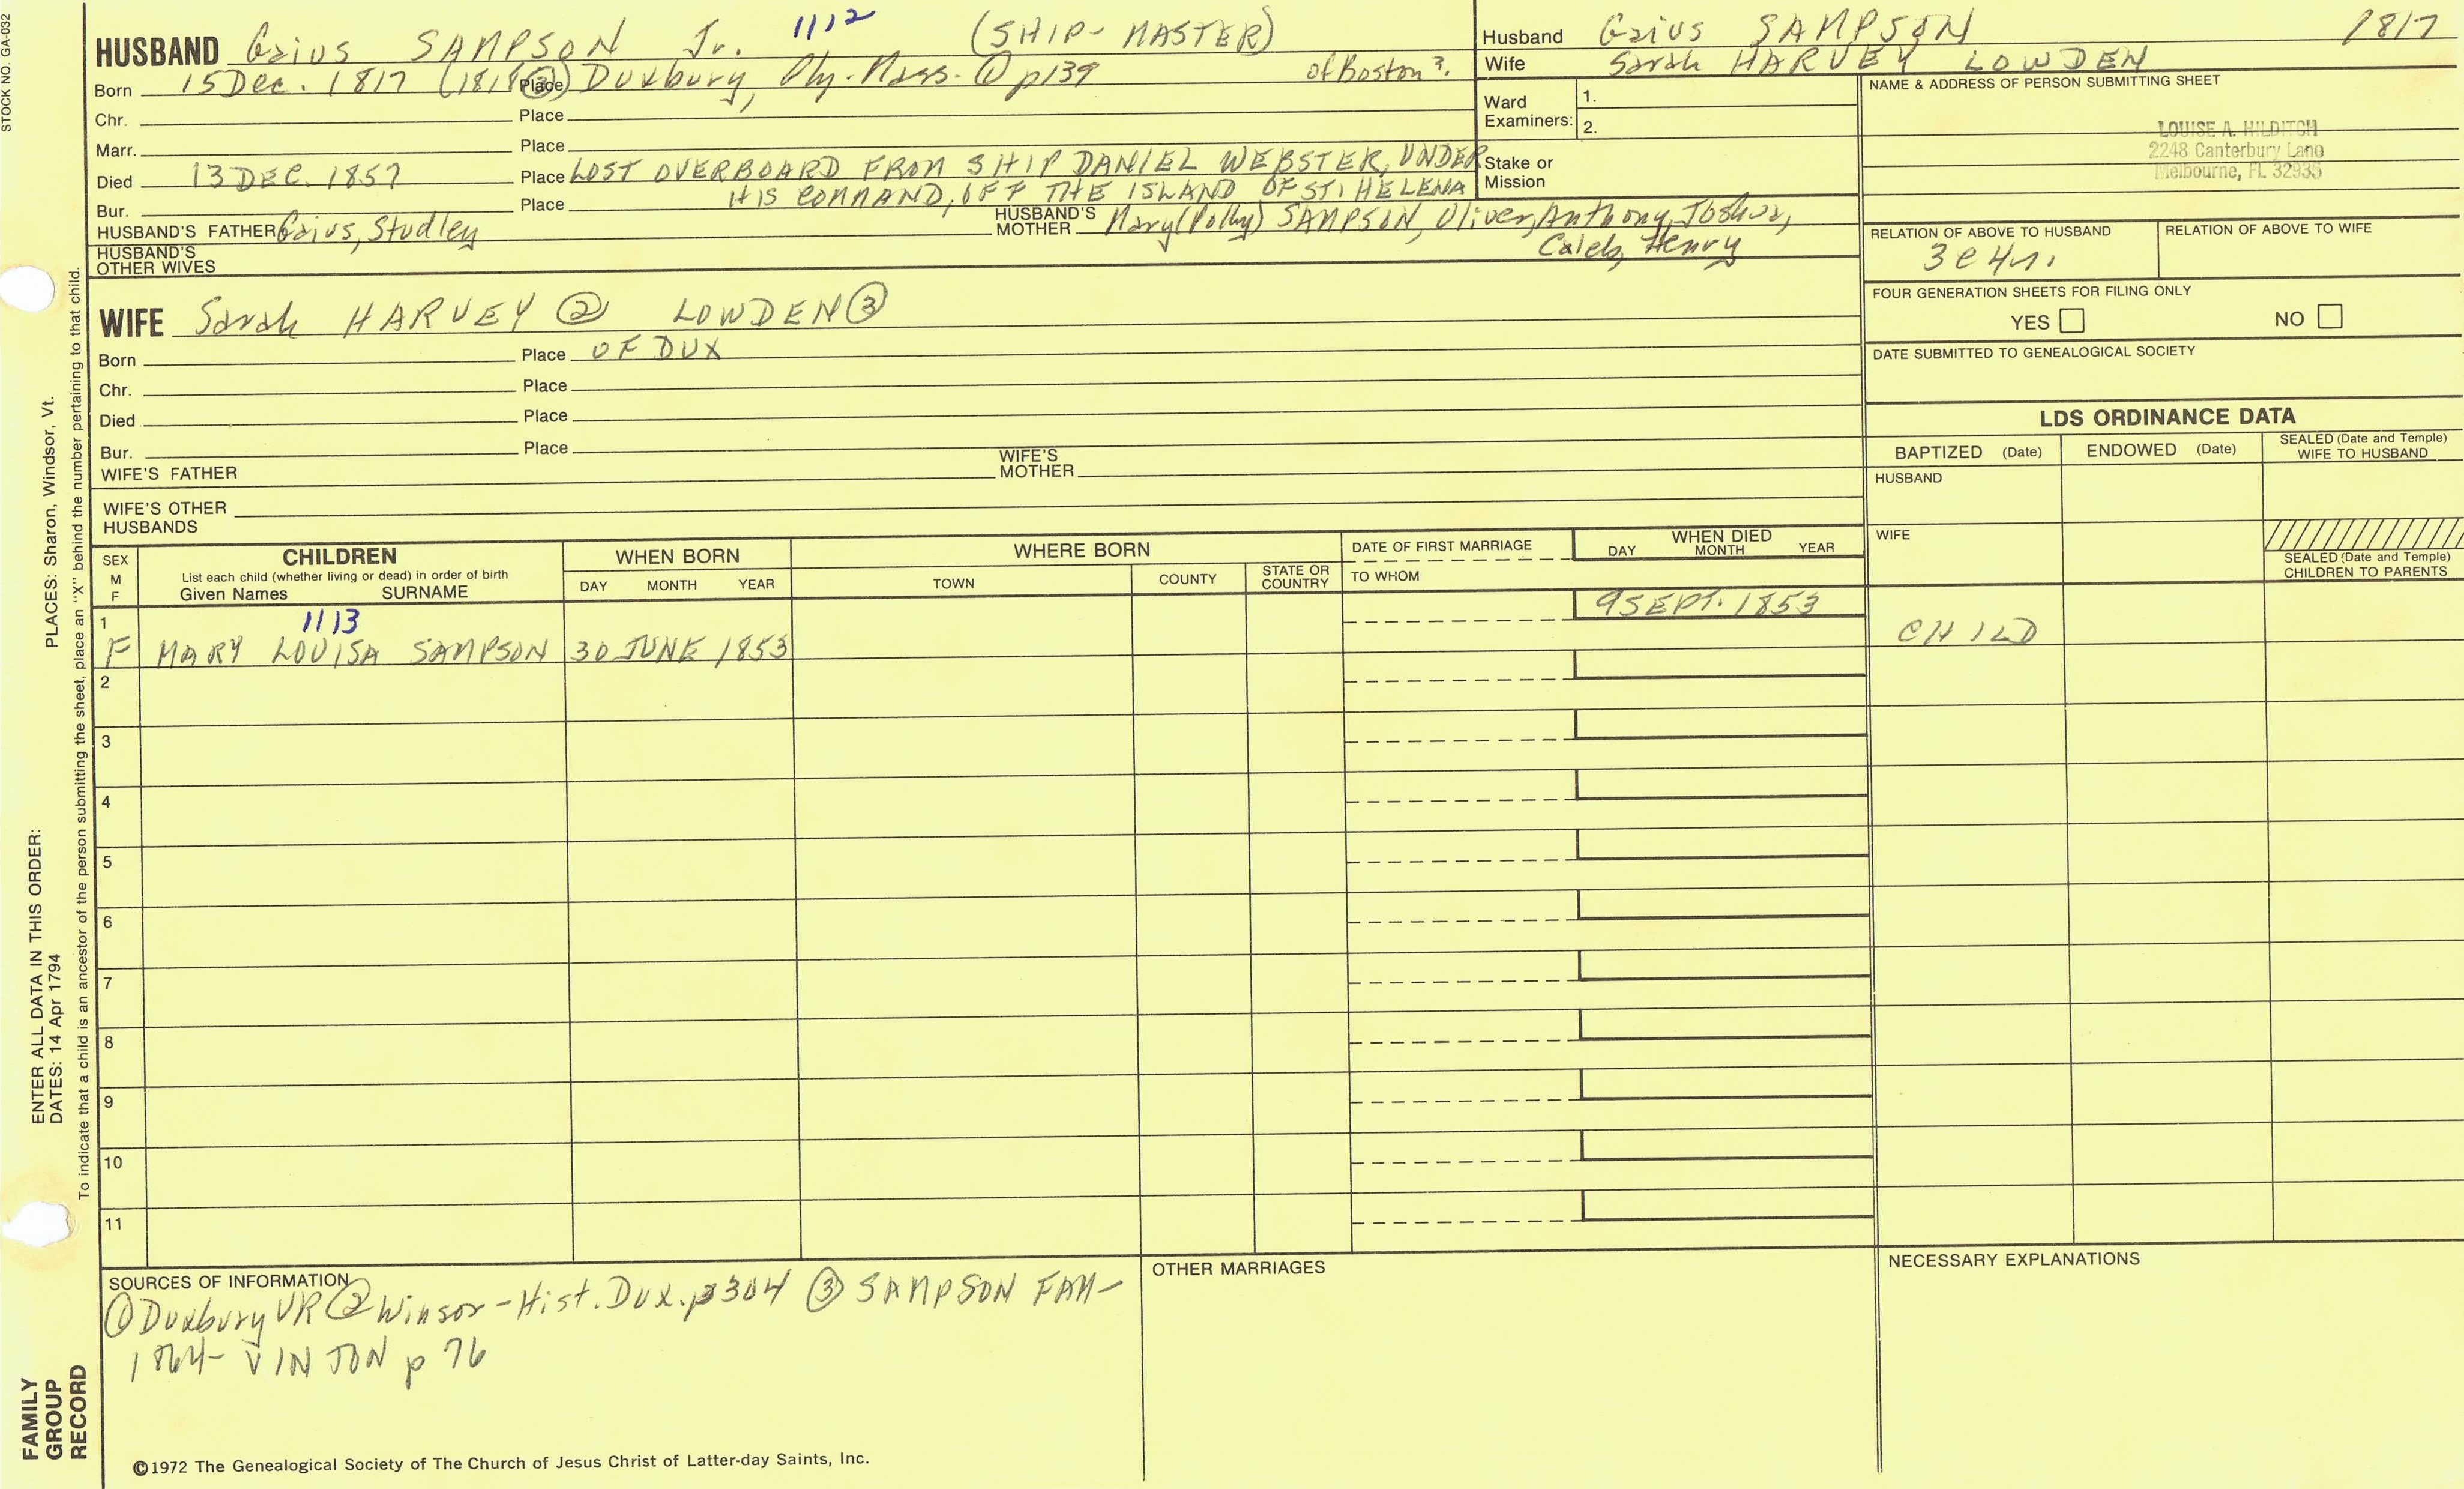 STOCK NO. GA-032
HUSBAND Gaius SAMPSON Jr. 1112 (SHIP-MASTER)
Born 15 Dec. 1817 (1818 ③) Place Duxbury, Ply. Mass. ① p139 of Boston ?.
Chr. Place
Marr. Place
Died 13 DEC. 1857 Place LOST OVERBOARD FROM SHIP DANIEL WEBSTER, UNDER
HIS COMMAND, OFF THE ISLAND OF ST. HELENA
Bur. Place
HUSBAND'S FATHER Gaius, Studley HUSBAND'S MOTHER Mary (Polly) SAMPSON, Oliver, Anthony, Joshua,
Caleb, Henry
HUSBAND'S OTHER WIVES
WIFE Sarah HARVEY ② LOWDEN ③
Born Place OF DUX
Chr. Place
Died Place
Bur. Place
WIFE'S FATHER WIFE'S MOTHER
WIFE'S OTHER HUSBANDS
Husband Gaius SAMPSON 1817
Wife Sarah HARVEY LOWDEN
Ward Examiners: 1.
2.
Stake or Mission
NAME & ADDRESS OF PERSON SUBMITTING SHEET
LOUISE A. HILDITCH
2248 Canterbury Lane
Melbourne, FL 32935
RELATION OF ABOVE TO HUSBAND RELATION OF ABOVE TO WIFE
3c4r.
FOUR GENERATION SHEETS FOR FILING ONLY
YES NO
DATE SUBMITTED TO GENEALOGICAL SOCIETY
LDS ORDINANCE DATA
BAPTIZED (Date) ENDOWED (Date) SEALED (Date and Temple) WIFE TO HUSBAND
HUSBAND
WIFE
SEALED (Date and Temple) CHILDREN TO PARENTS
SEX M F
CHILDREN
List each child (whether living or dead) in order of birth
Given Names SURNAME
WHEN BORN
DAY MONTH YEAR
WHERE BORN
TOWN COUNTY STATE OR COUNTRY
DATE OF FIRST MARRIAGE
TO WHOM
WHEN DIED
DAY MONTH YEAR
1 1113 9 SEPT. 1853
F MARY LOUISA SAMPSON 30 JUNE 1853 CHILD
2
3
4
5
6
7
8
9
10
11
SOURCES OF INFORMATION
① Duxbury VR ② Winsor - Hist. Dux. p304 ③ SAMPSON FAM-
1864 - VINTON p 76
OTHER MARRIAGES
NECESSARY EXPLANATIONS
©1972 The Genealogical Society of The Church of Jesus Christ of Latter-day Saints, Inc.
FAMILY
GROUP
RECORD
ENTER ALL DATA IN THIS ORDER:
DATES: 14 Apr 1794
PLACES: Sharon, Windsor, Vt.
To indicate that a child is an ancestor of the person submitting the sheet, place an "X" behind the number pertaining to that child.